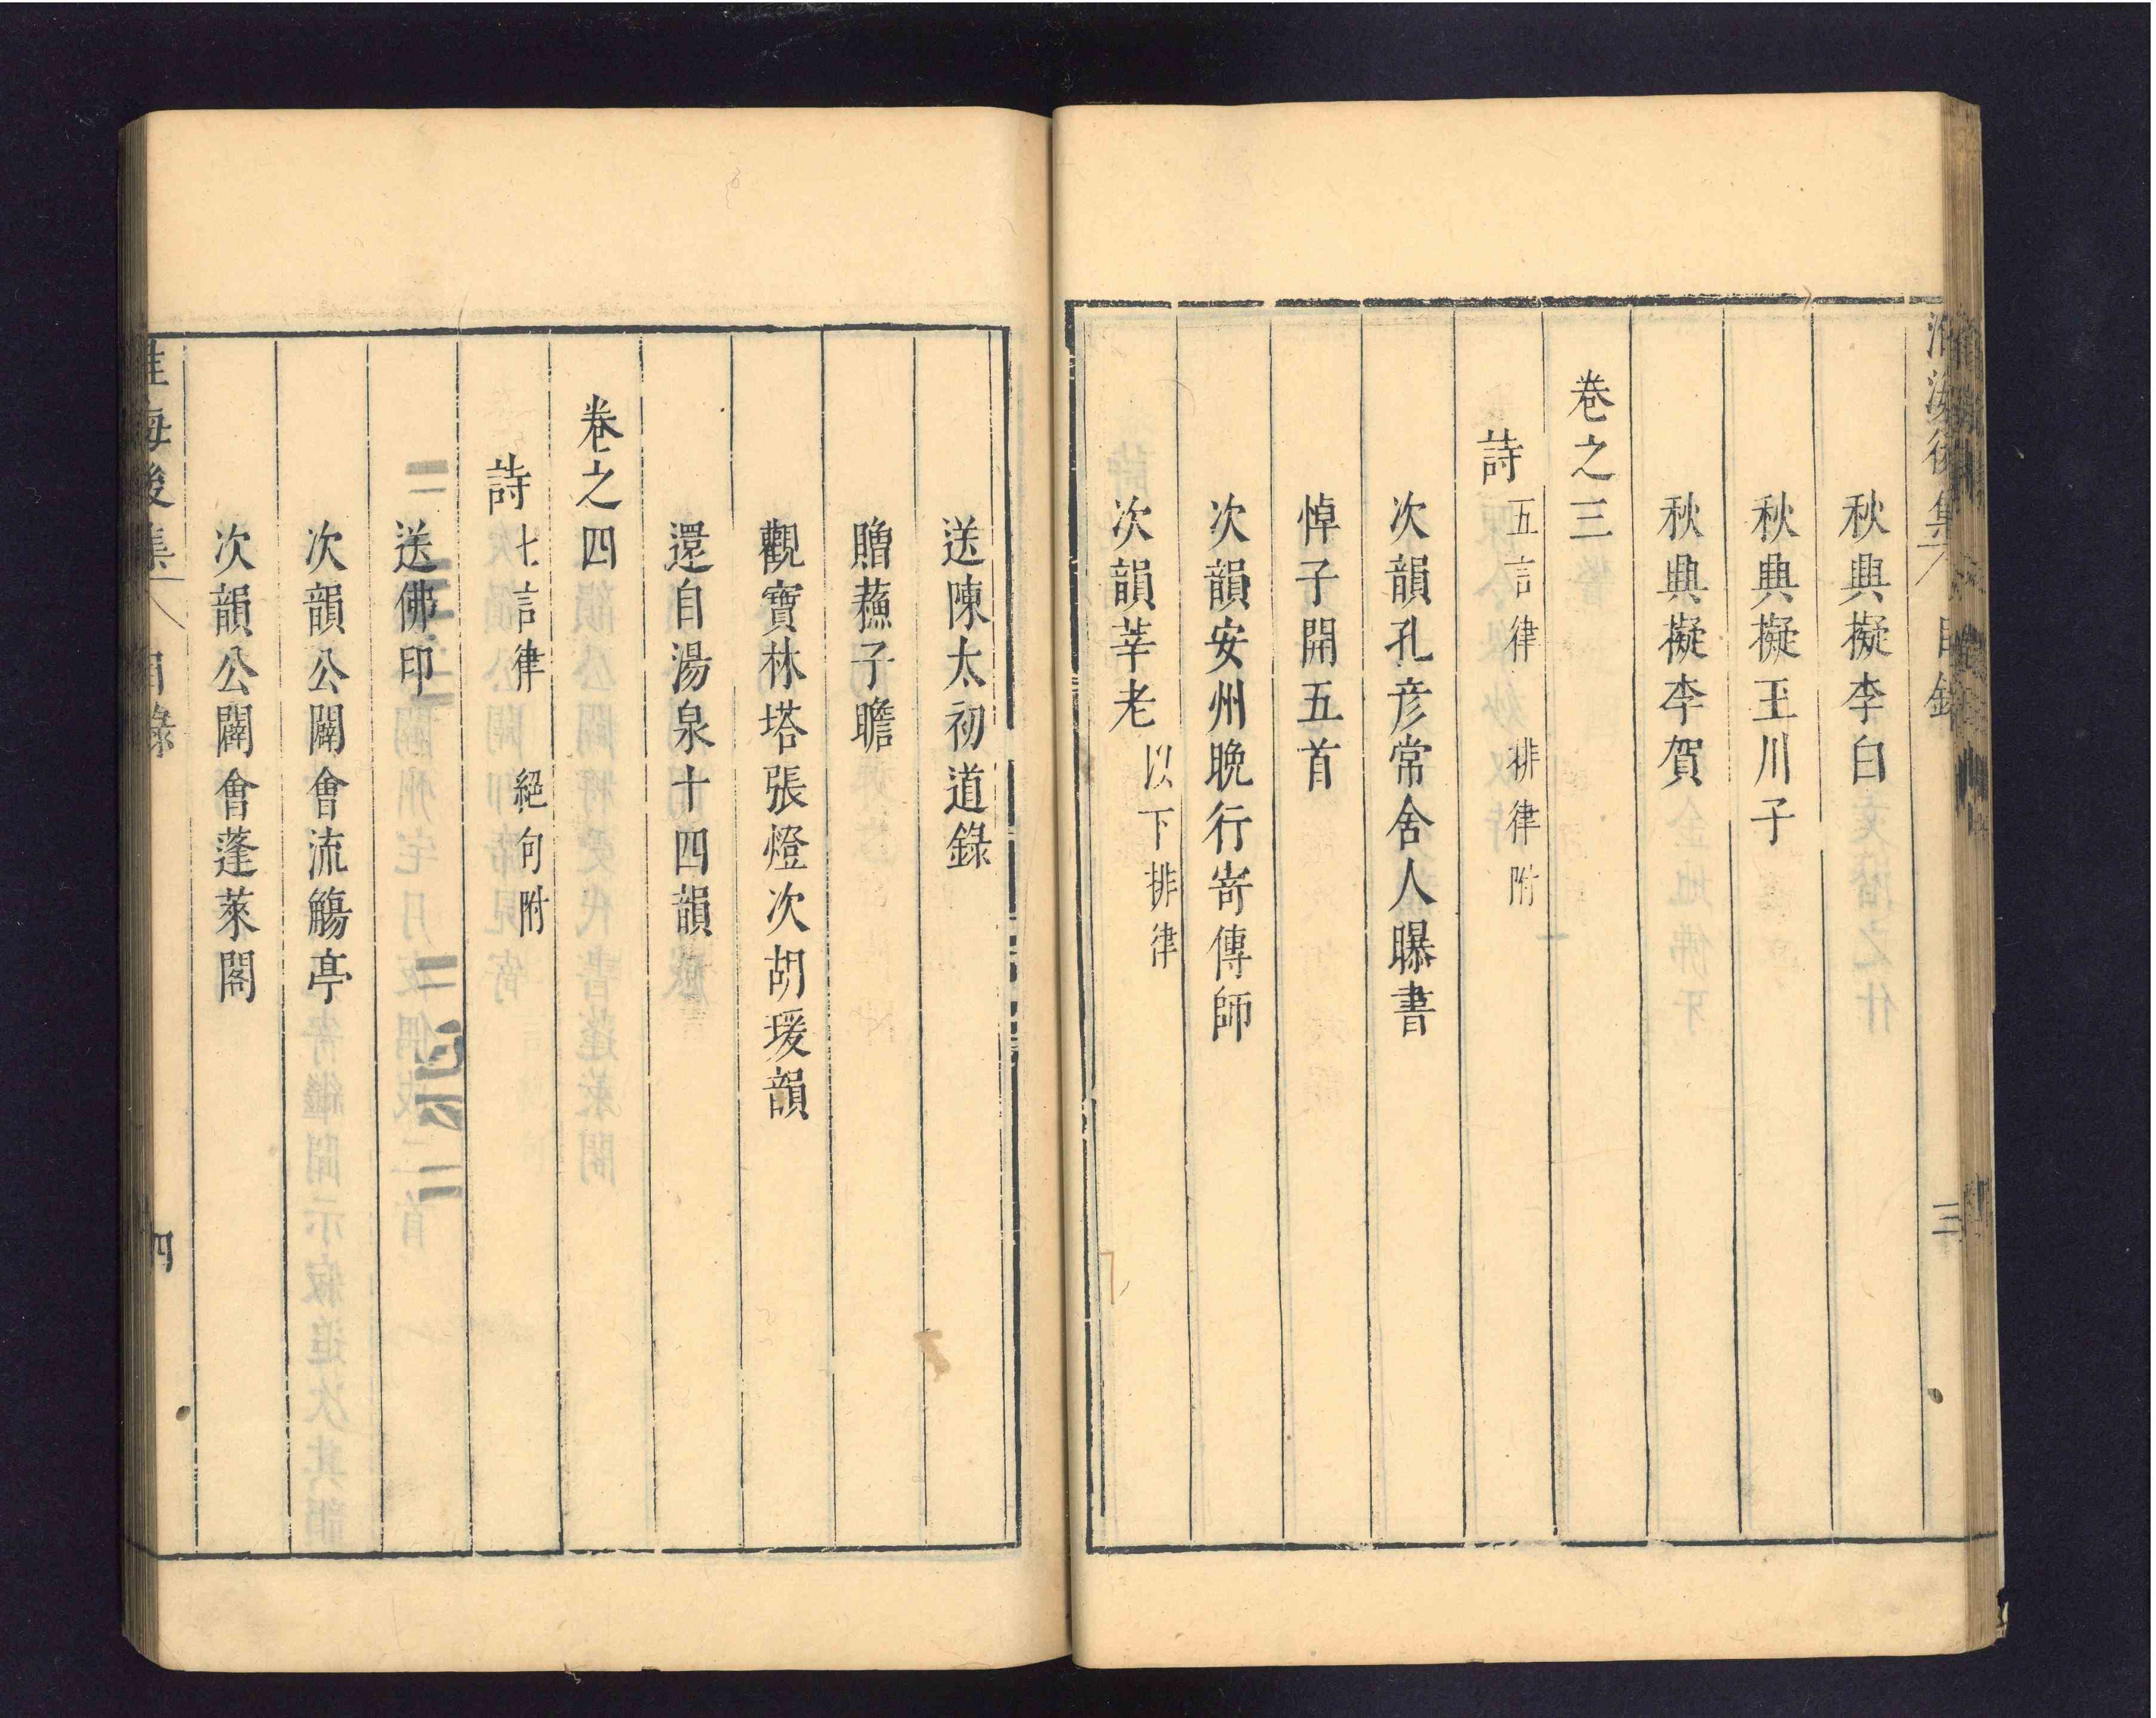 淮海後集 目錄 三
秋興擬李白
秋興擬玉川子
秋興擬李賀
卷之三
詩 五言律 排律附
次韻孔彦常舍人曝書
悼子開五首
次韻安州晚行寄傳師
次韻莘老 以下排律
送陳太初道錄
贈蘓子瞻
觀寶林塔張燈次胡瑗韻
還自湯泉十四韻
卷之四
詩 七言律 絕句附
送佛印
次韻公闢會流觴亭
次韻公闢會蓬萊閣
淮海後集 目錄 四